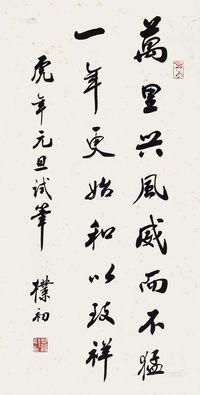 萬里興風威而不猛
一年更始和以致祥
虎年元旦試筆
樸初